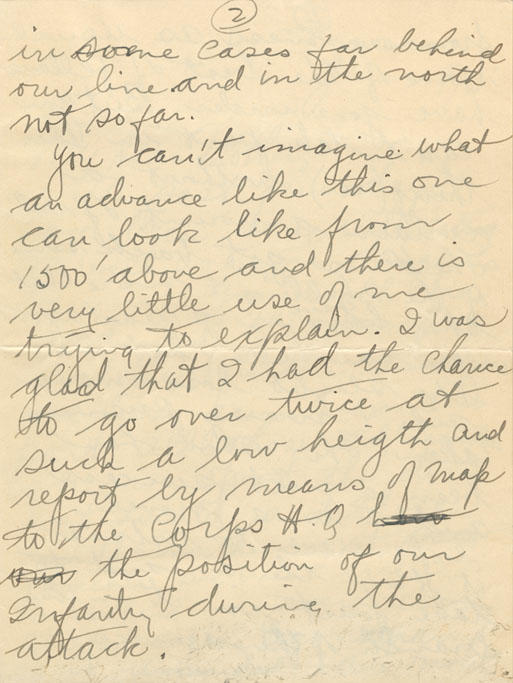 2
in some cases far behind
our line and in the north
not so far.
You can't imagine what
an advance like this one
can look like from
1500' above and there is
very little use of me
trying to explain. I was
glad that I had the chance
to go over twice at
such a low heigth and
report by means of map
to the Corps H.Q
the position of our
Infantry during the
attack.